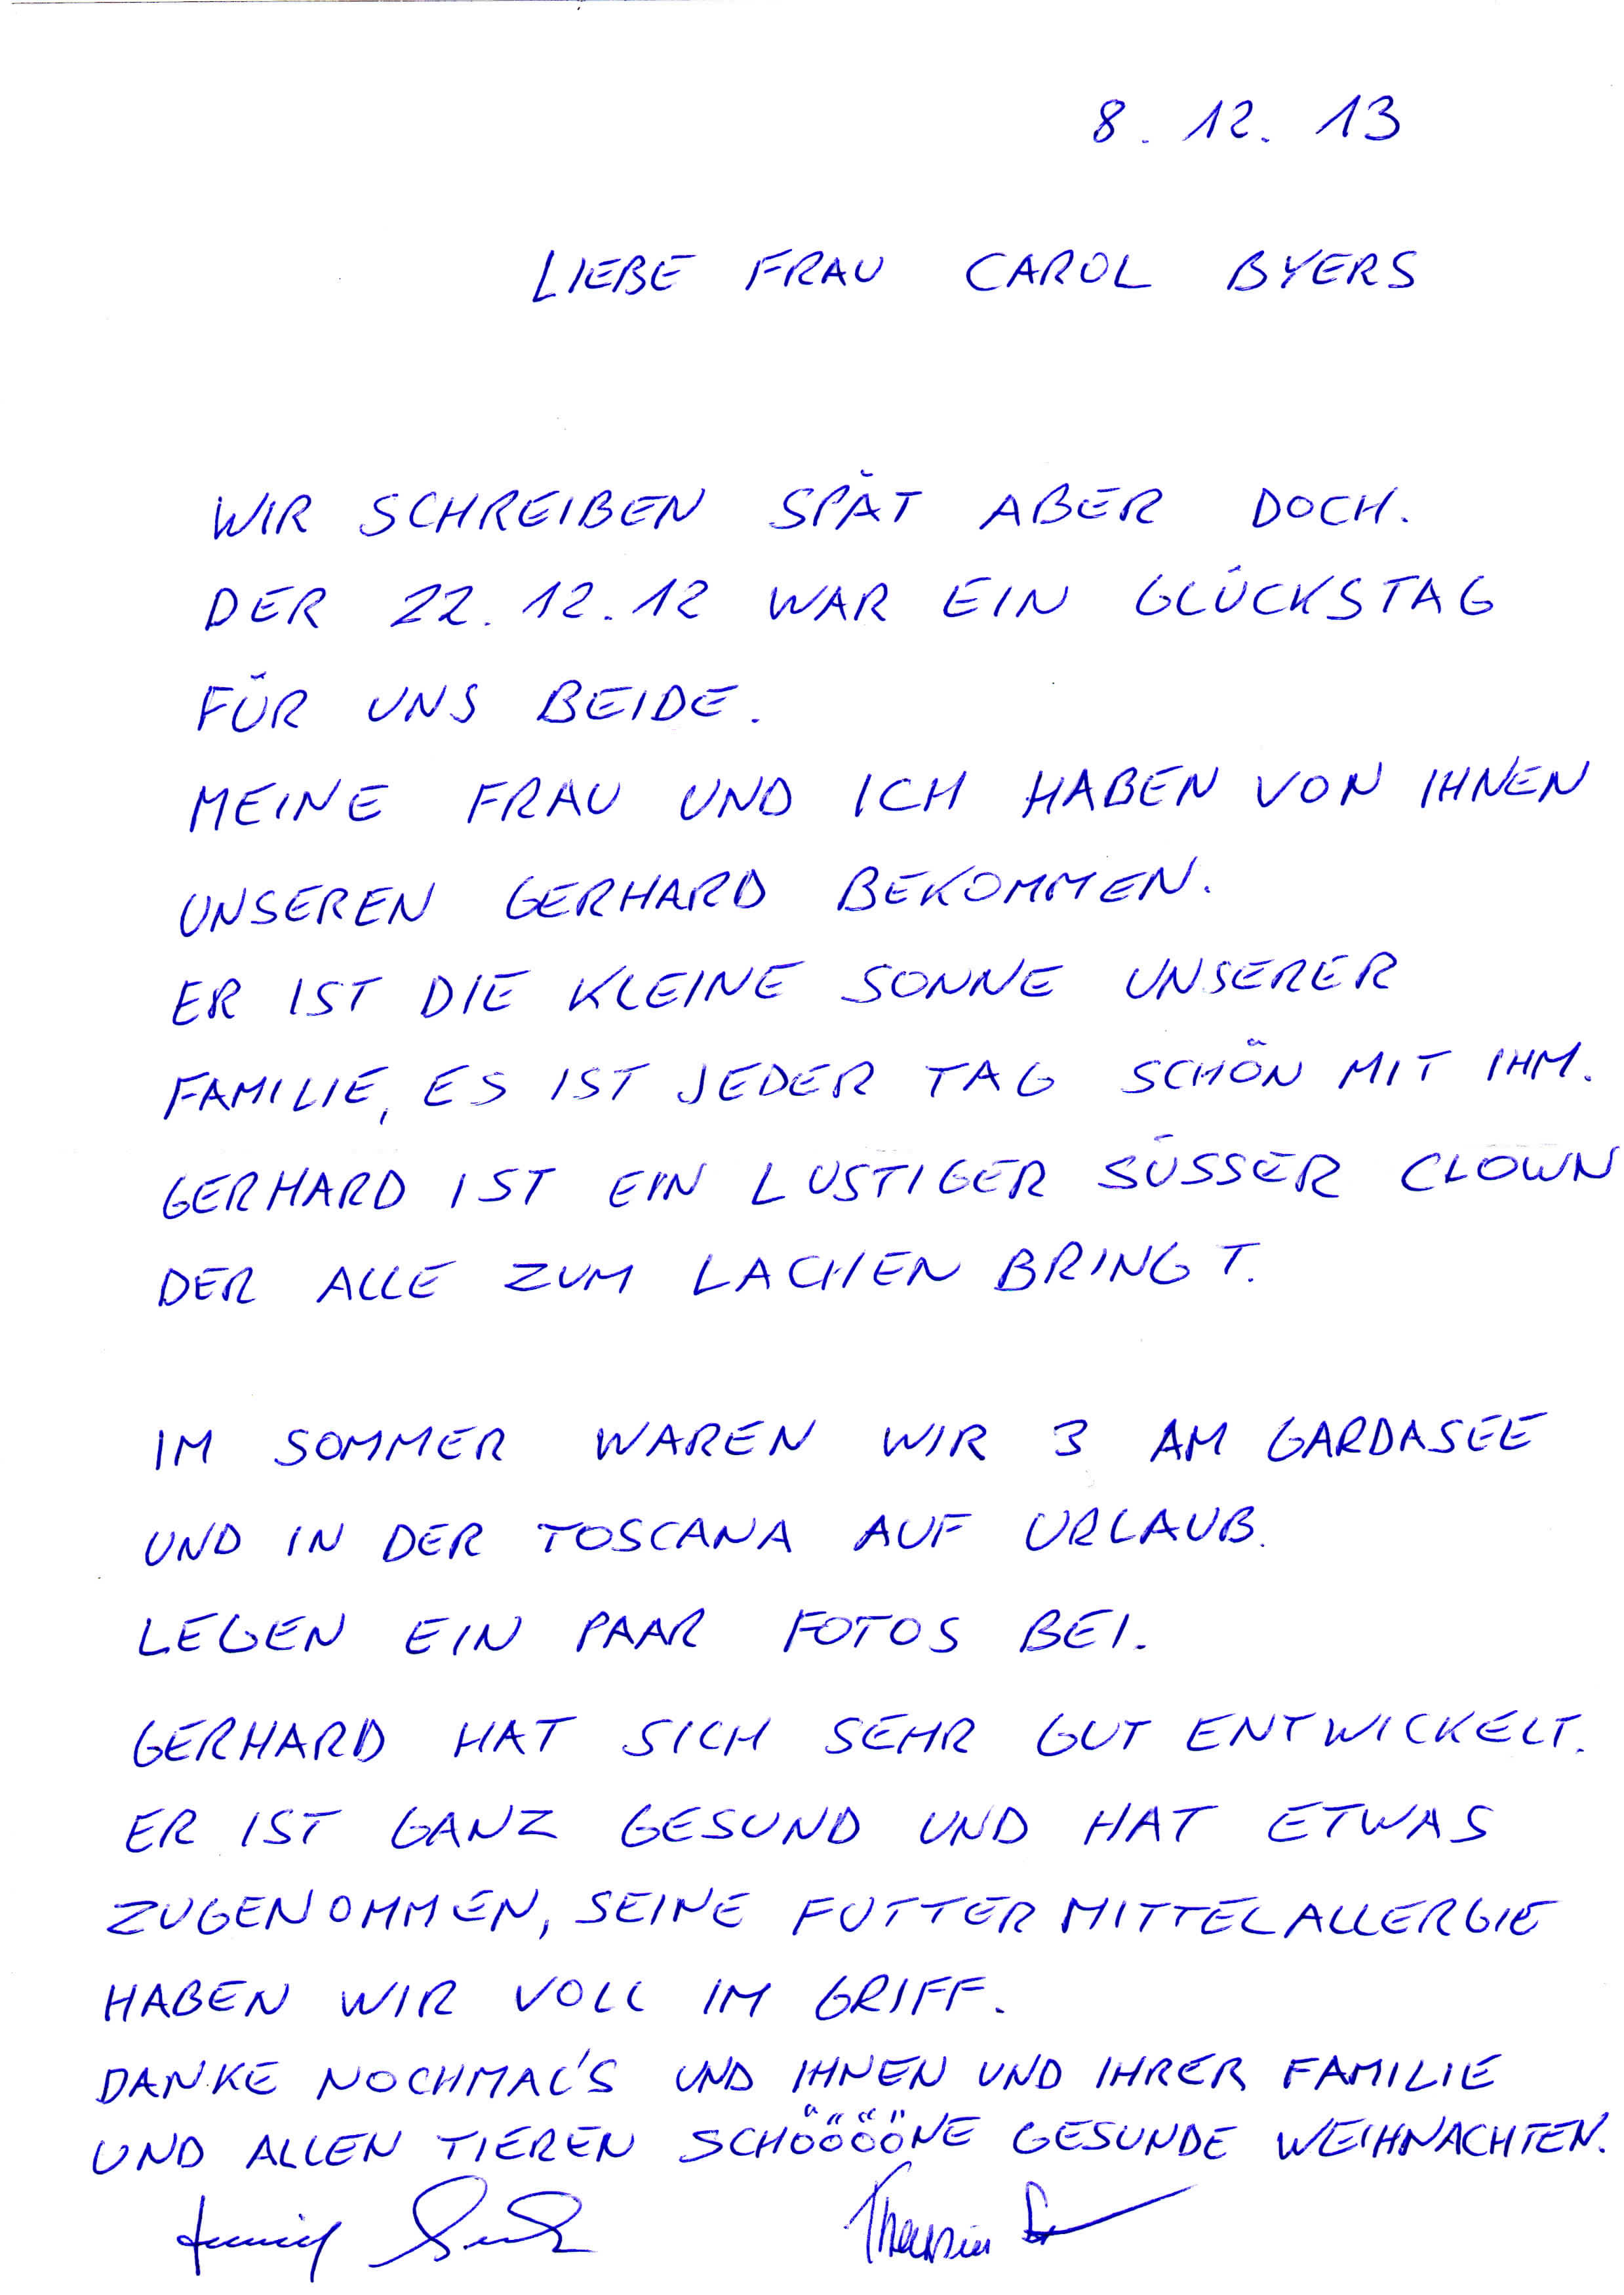 8. 12. 13
LIEBE FRAU CAROL BYERS
WIR SCHREIBEN SPÄT ABER DOCH.
DER 22.12.12 WAR EIN GLÜCKSTAG
FÜR UNS BEIDE.
MEINE FRAU UND ICH HABEN VON IHNEN
UNSEREN GERHARD BEKOMMEN.
ER IST DIE KLEINE SONNE UNSERER
FAMILIE, ES IST JEDER TAG SCHÖN MIT IHM.
GERHARD IST EIN LUSTIGER SÜSSER CLOWN
DER ALLE ZUM LACHEN BRINGT.
IM SOMMER WAREN WIR 3 AM GARDASEE
UND IN DER TOSCANA AUF URLAUB.
LEGEN EIN PAAR FOTOS BEI.
GERHARD HAT SICH SEHR GUT ENTWICKELT.
ER IST GANZ GESUND UND HAT ETWAS
ZUGENOMMEN, SEINE FUTTERMITTELALLERGIE
HABEN WIR VOLL IM GRIFF.
DANKE NOCHMAL'S UND IHNEN UND IHRER FAMILIE
UND ALLEN TIEREN SCHÖÖÖÖNE GESUNDE WEIHNACHTEN.